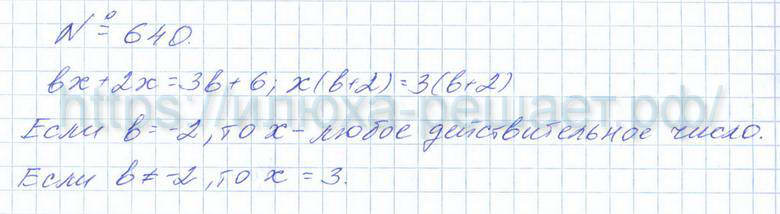 № 640.
вx+2x=3в+6; x(в+2)=3(в+2)
https://илюха-решает.рф/
Если в=-2, то x - любое действительное число.
Если в≠-2, то x = 3.